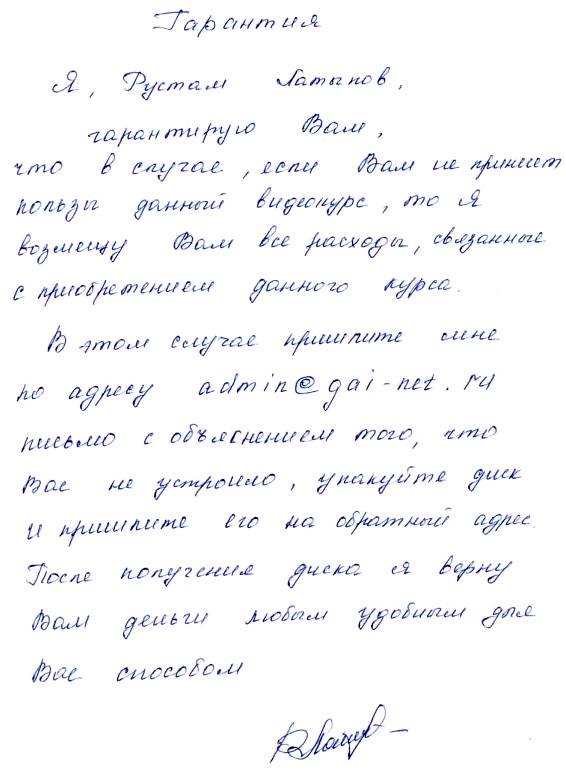 Гарантия
Я, Рустам Латыпов,
гарантирую Вам,
что в случае, если Вам не принесет
пользы данный видеокурс, то я
возмещу Вам все расходы, связанные
с приобретением данного курса.
В этом случае пришлите мне
по адресу admin@gai-net.ru
письмо с объяснением того, что
Вас не устроило, упакуйте диск
и пришлите его на обратный адрес.
После получения диска я верну
Вам деньги любым удобным для
Вас способом